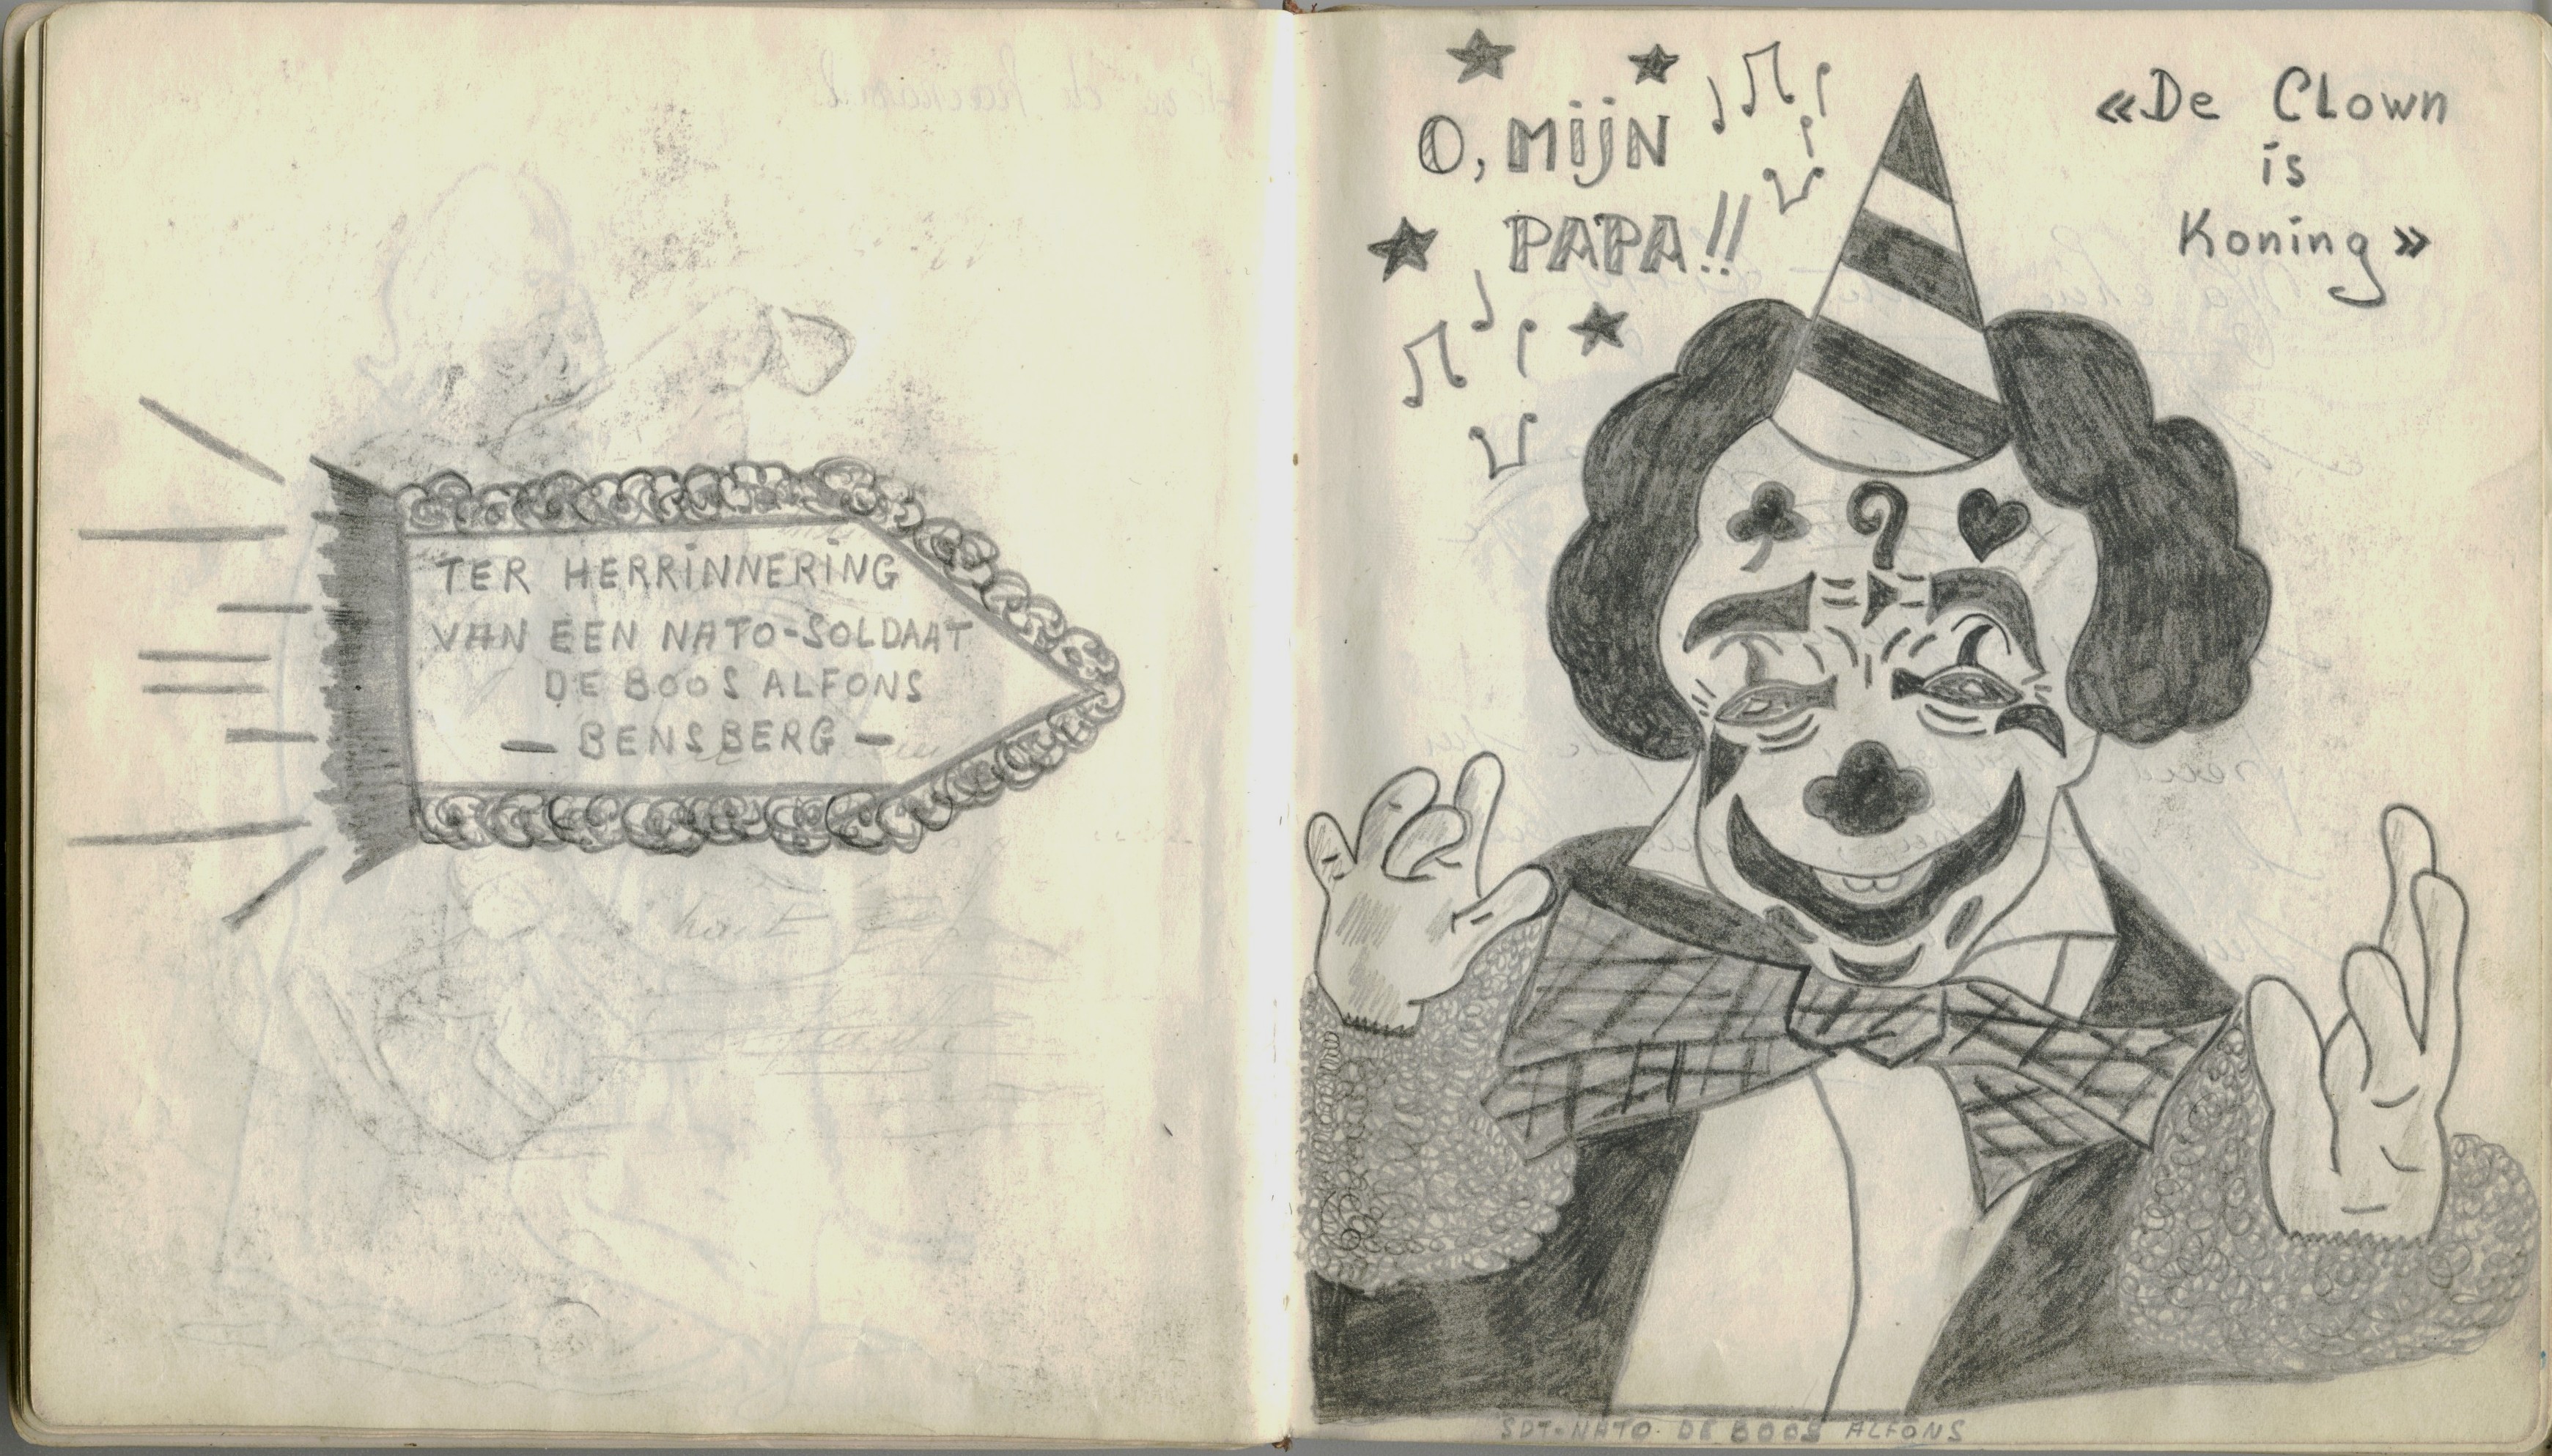 TER HERRINNERING
VAN EEN NATO-SOLDAAT
DE BOOS ALFONS
— BENSBERG —
O, MIJN
PAPA!!
«De Clown
is
Koning»
SDT. NATO. DE BOOS ALFONS